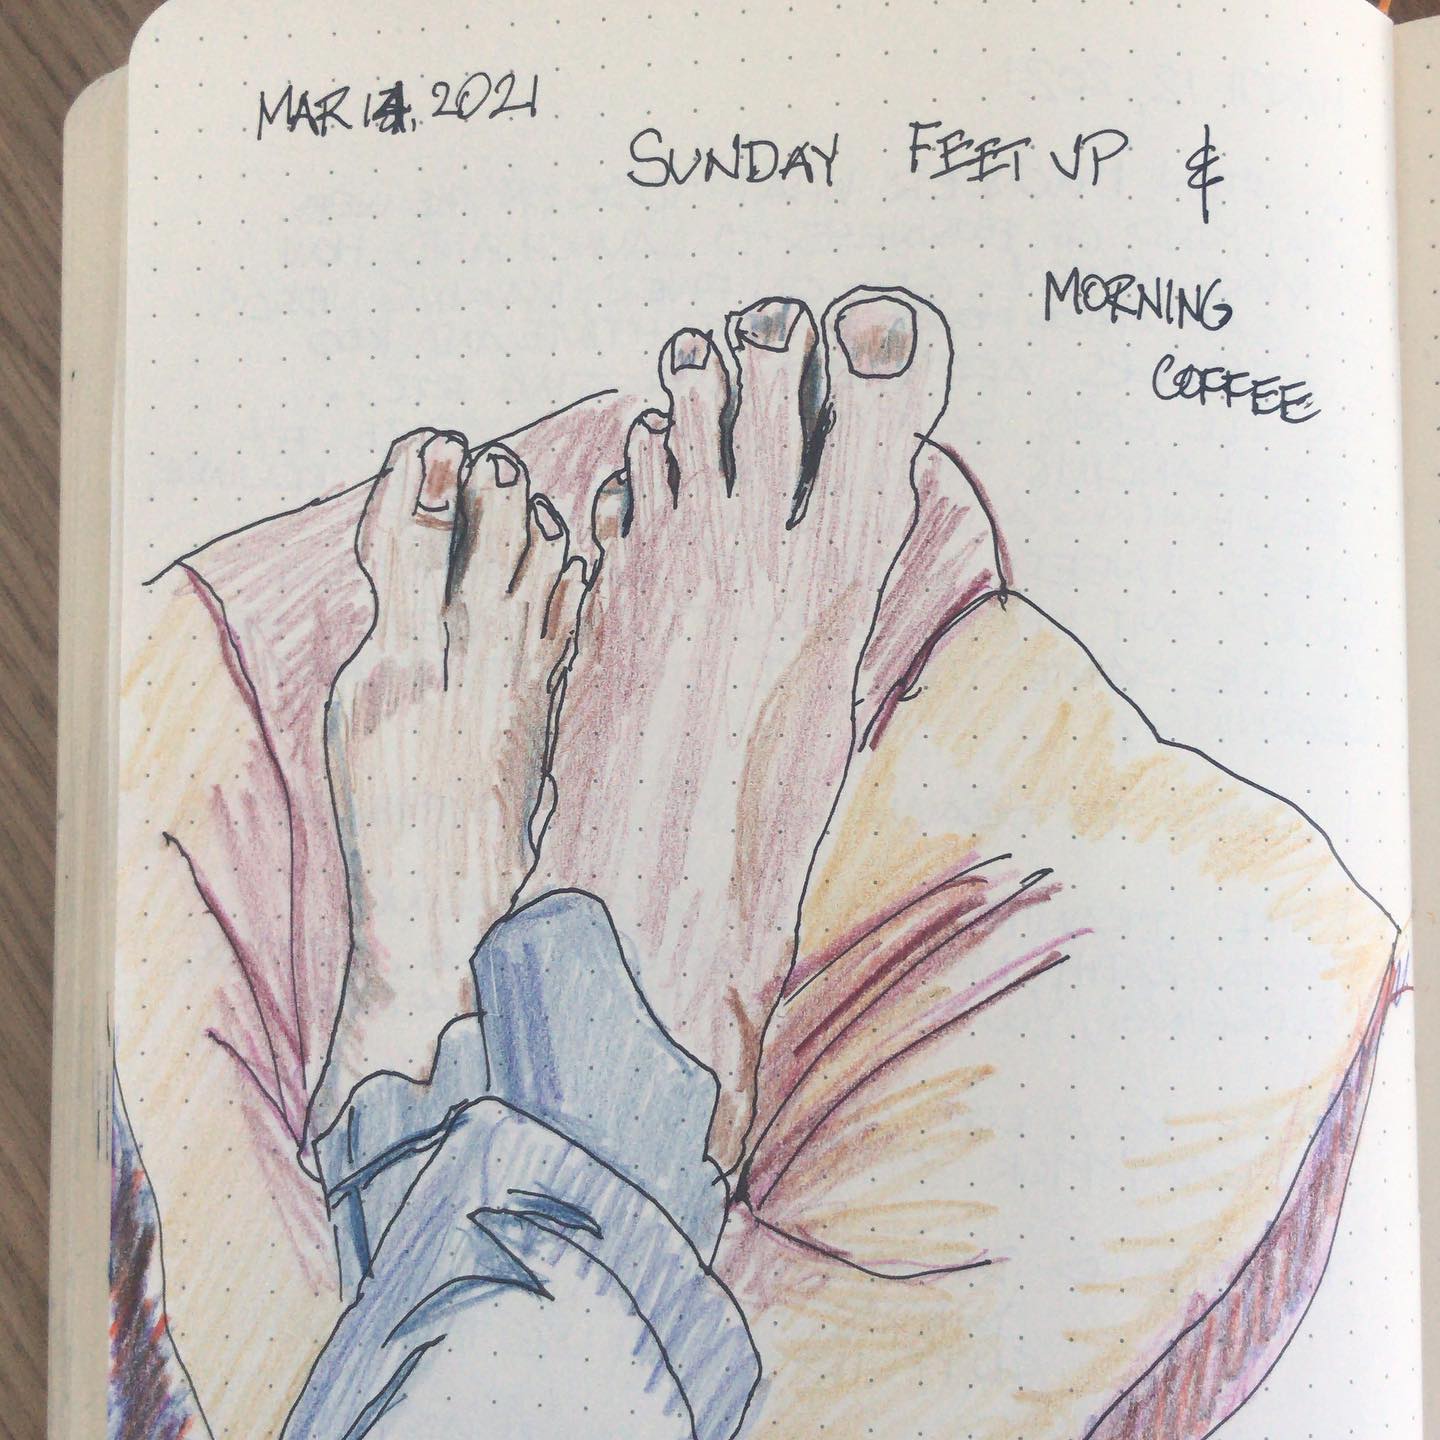 MAR 14, 2021
SUNDAY FEET UP &
MORNING
COFFEE